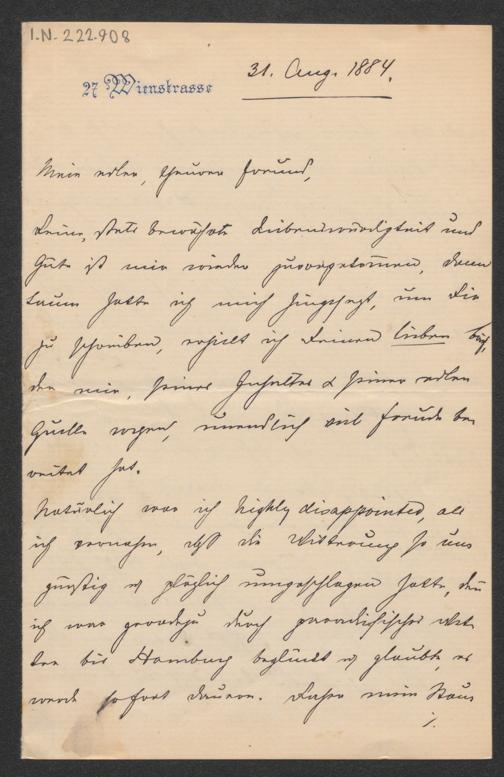 I.N. 222.908
27 Wienstrasse
31. Aug. 1884.
Mein edler, theurer Freund,
Deine, stets bewährte Liebenswürdigkeit und
Güte ist mir wieder zuvorgekommen, denn
kaum hatte ich mich hingesetzt, um Dir
zu schreiben, erhielt ich Deinen lieben Brief,
der mir, seines Inhaltes & seiner edlen
Quelle wegen, unendlich viel Freude be
reitet hat.
Natürlich war ich highly disappointed, als
ich vernahm, daß die Witterung so un
günstig u plötzlich umgeschlagen hatte, denn
ich war geradezu durch paradisisches Wet
ter bis Hamburg beglückt u glaubte, es
werde sofort dauern. Daher mein Stau